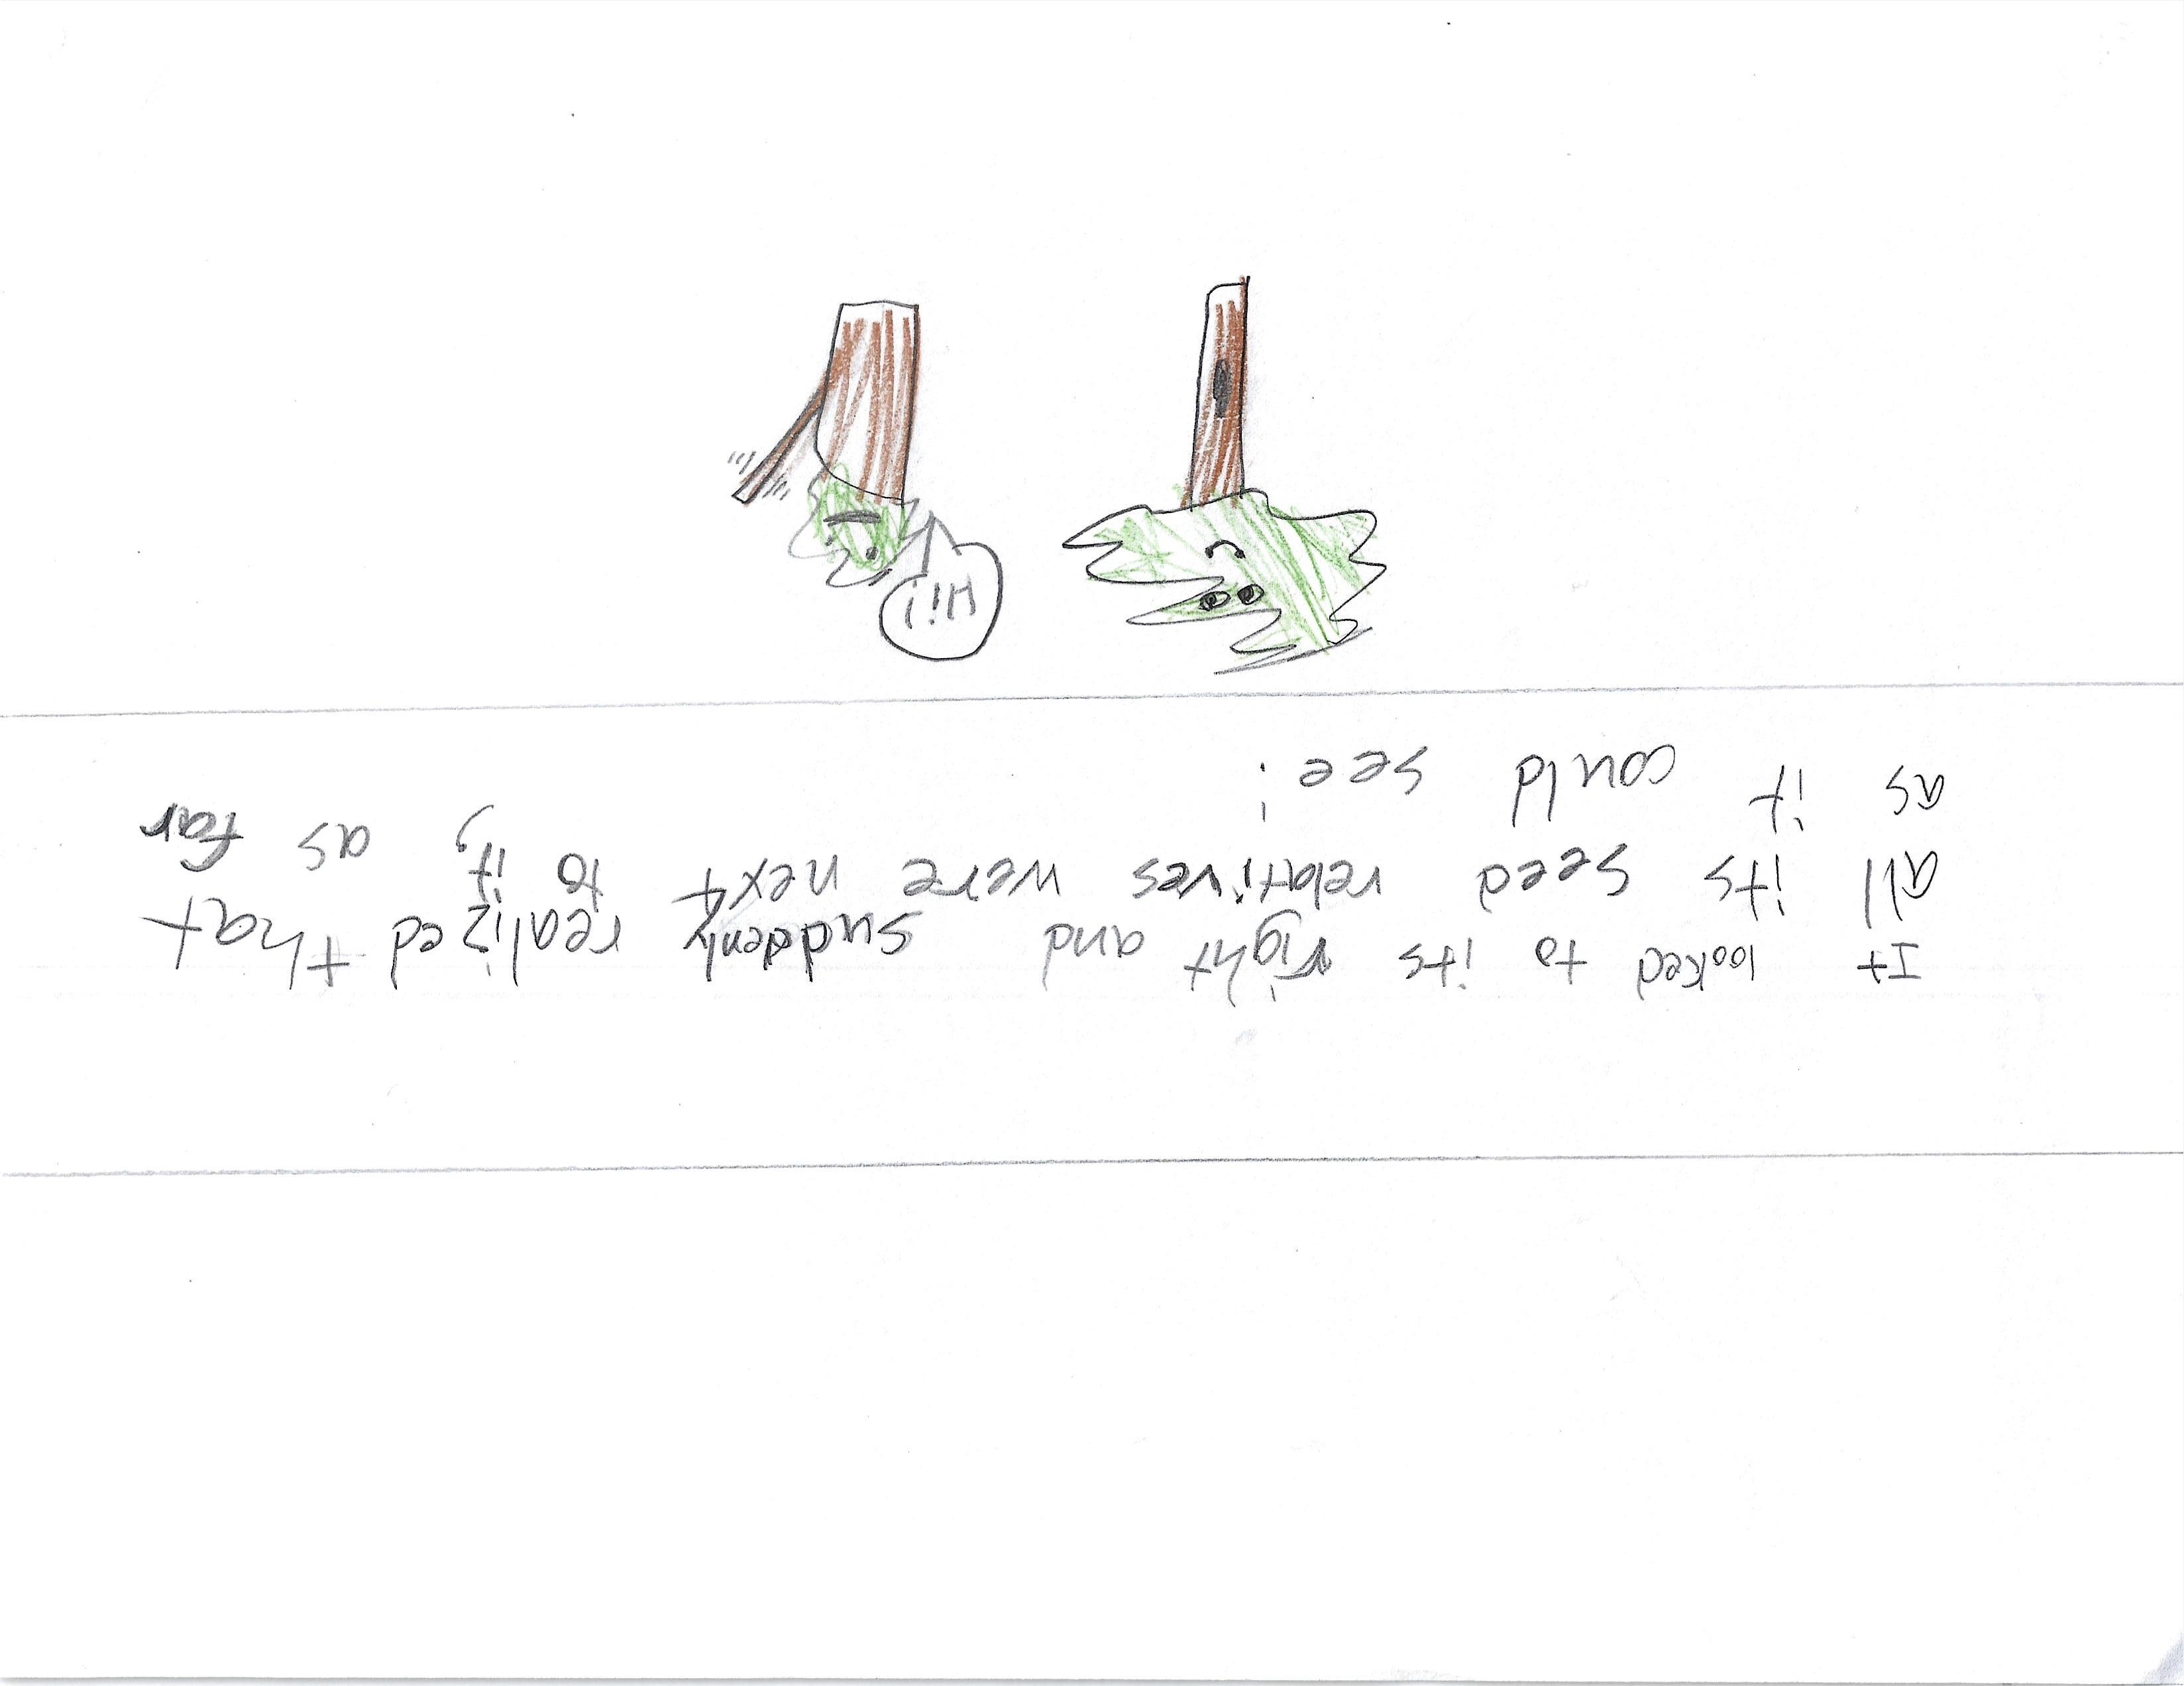 It looked to its right and suddenly realized that
all its seed relatives were next to it, as far
as it could see!
Hi!